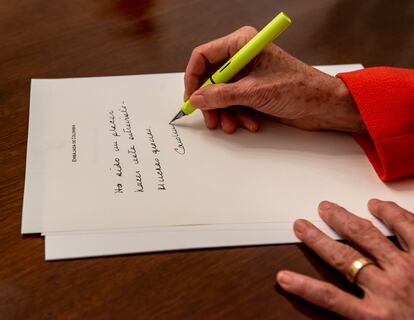 EMBAJADA DE COLOMBIA
Ha sido un placer
hacer esta entrevista.
Muchas gracias